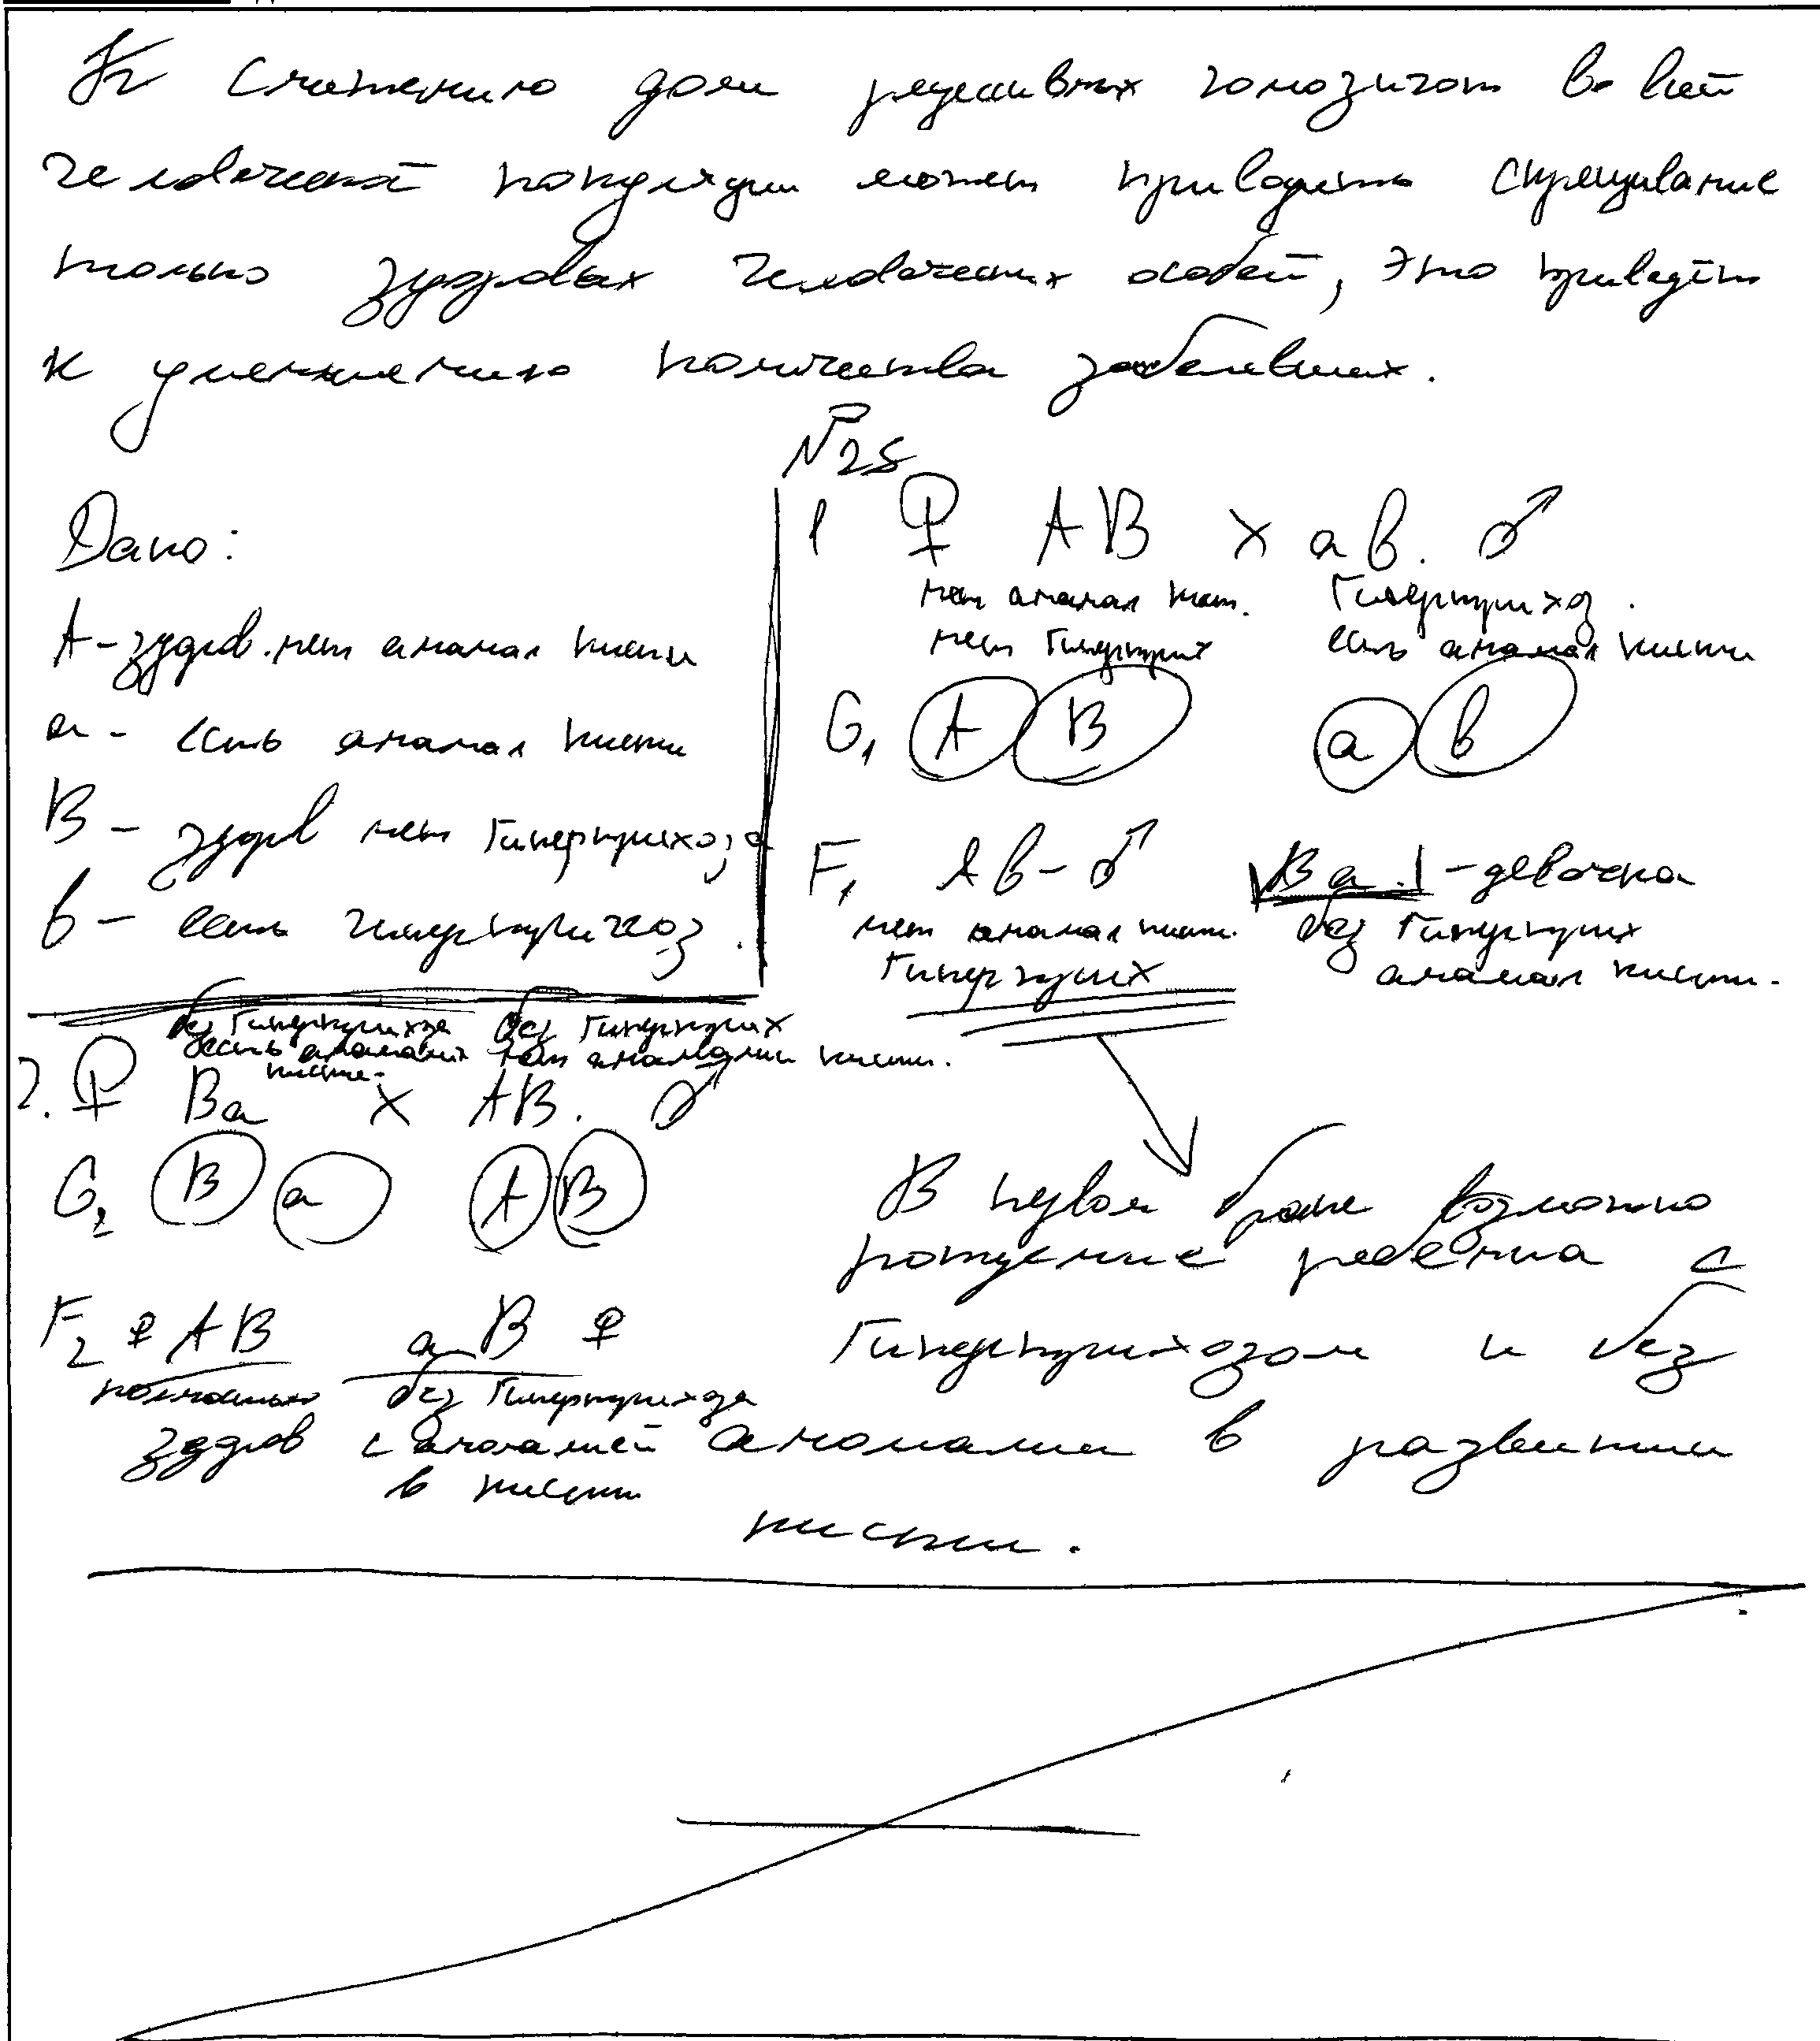 К снижению доли рецессивных гомозигот во всей
человеческой популяции может приводить скрещивание
только здоровых человеческих особей, это приведёт
к уменьшению количества заболевших.
№28
Дано:
А - здоров. нет аномал кисти
а - есть аномал кисти
В - здоров нет Гипертрихоза
в - есть гипертрихоз.
1 ♀ АВ × ав. ♂
нет аномал кист. Гипертрихоз.
нет Гипертрих есть аномал кисти
G1 А В а в
F1 Ав - ♂ Ва - девочка
нет аномал кист. без Гипертрих
Гипертрих аномал кисти.
без Гипертрихоза без Гипертрих
есть аномалия нет аномалии кисти.
кисти.
2. ♀ Ва × АВ. ♂
G2 В а А В
F2 ♀ АВ аВ ♀
полностью без Гипертрихоза
здоров с аномалией
в кисти
В первом браке возможно
рождение ребёнка с
Гипертрихозом и без
аномалии в развитии
кисти.